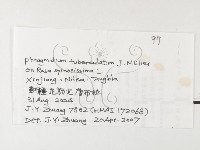 99
phragmidium tuberculatum J. Müller
on Rosa spinosissima L.
Xinjiang: Nilka: Tangbla
31 Aug 2004
J.Y. Zhuang 7802 (HMAS 172068)
Det. J.Y. Zhuang 20 Apr. 2007